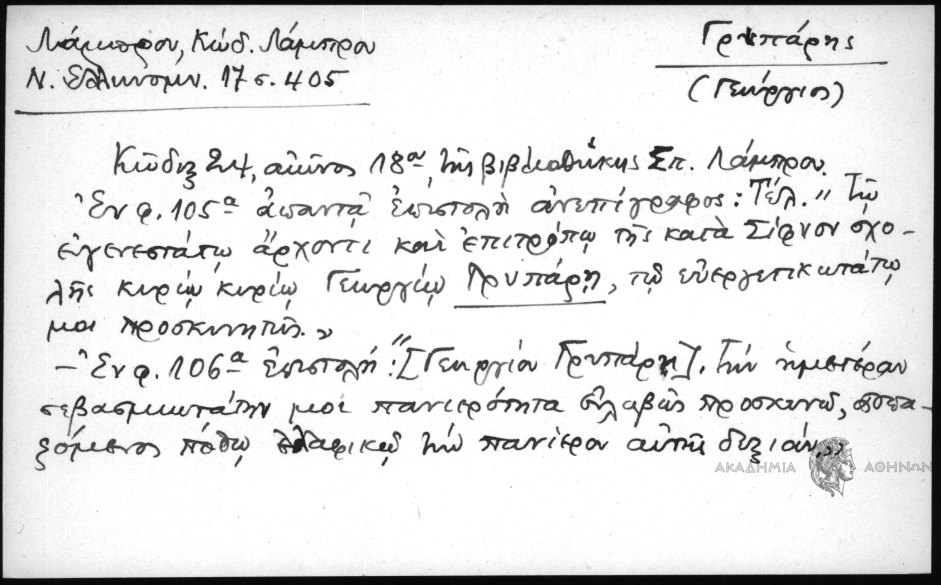 Λάμπρου, Κώδ. Λάμπρου
Ν. Ἑλληνομν. 17 σ. 405
Γρυπάρης
(Γεώργιος)
Κῶδιξ 24, αἰῶνος 18ου, τῆς βιβλιοθήκης Σπ. Λάμπρου.
Ἐν φ. 105α ἀπαντᾷ ἐπιστολὴ ἀνεπίγραφος: Τέλ. „Τῷ
εὐγενεστάτῳ ἄρχοντι καὶ ἐπιτρόπῳ τῆς κατὰ Σίφνον σχο-
λῆς κυρίῳ κυρίῳ Γεωργίῳ Γρυπάρῃ, τῷ εὐεργετικωτάτῳ
μοι προσκυνητῶς.„
— Ἐν φ. 106α ἐπιστολή: "[Γεωργίου Γρυπάρη]. Τὴν ἡμετέραν
σεβασμιωτάτην μοι πανιερότητα εὐλαβῶς προσκυνῶ, ἀσπα-
ζόμενος πόθῳ ἐδαφικῷ τὴν πανίερον αὐτῆς δεξιάν„
ΑΚΑΔΗΜΙΑ ΑΘΗΝΩΝ